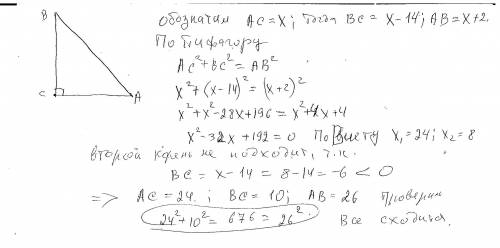 B
C
A
обозначим AC = x; тогда BC = x-14; AB = x+2.
По Пифагору
AC² + BC² = AB²
x² + (x-14)² = (x+2)²
x² + x² - 28x + 196 = x² + 4x + 4
x² - 32x + 192 = 0 По Виету x₁ = 24; x₂ = 8
второй корень не подходит, т.к.
BC = x - 14 = 8 - 14 = -6 < 0
=> AC = 24.; BC = 10; AB = 26 проверим
24² + 10² = 676 = 26². Все сходится.